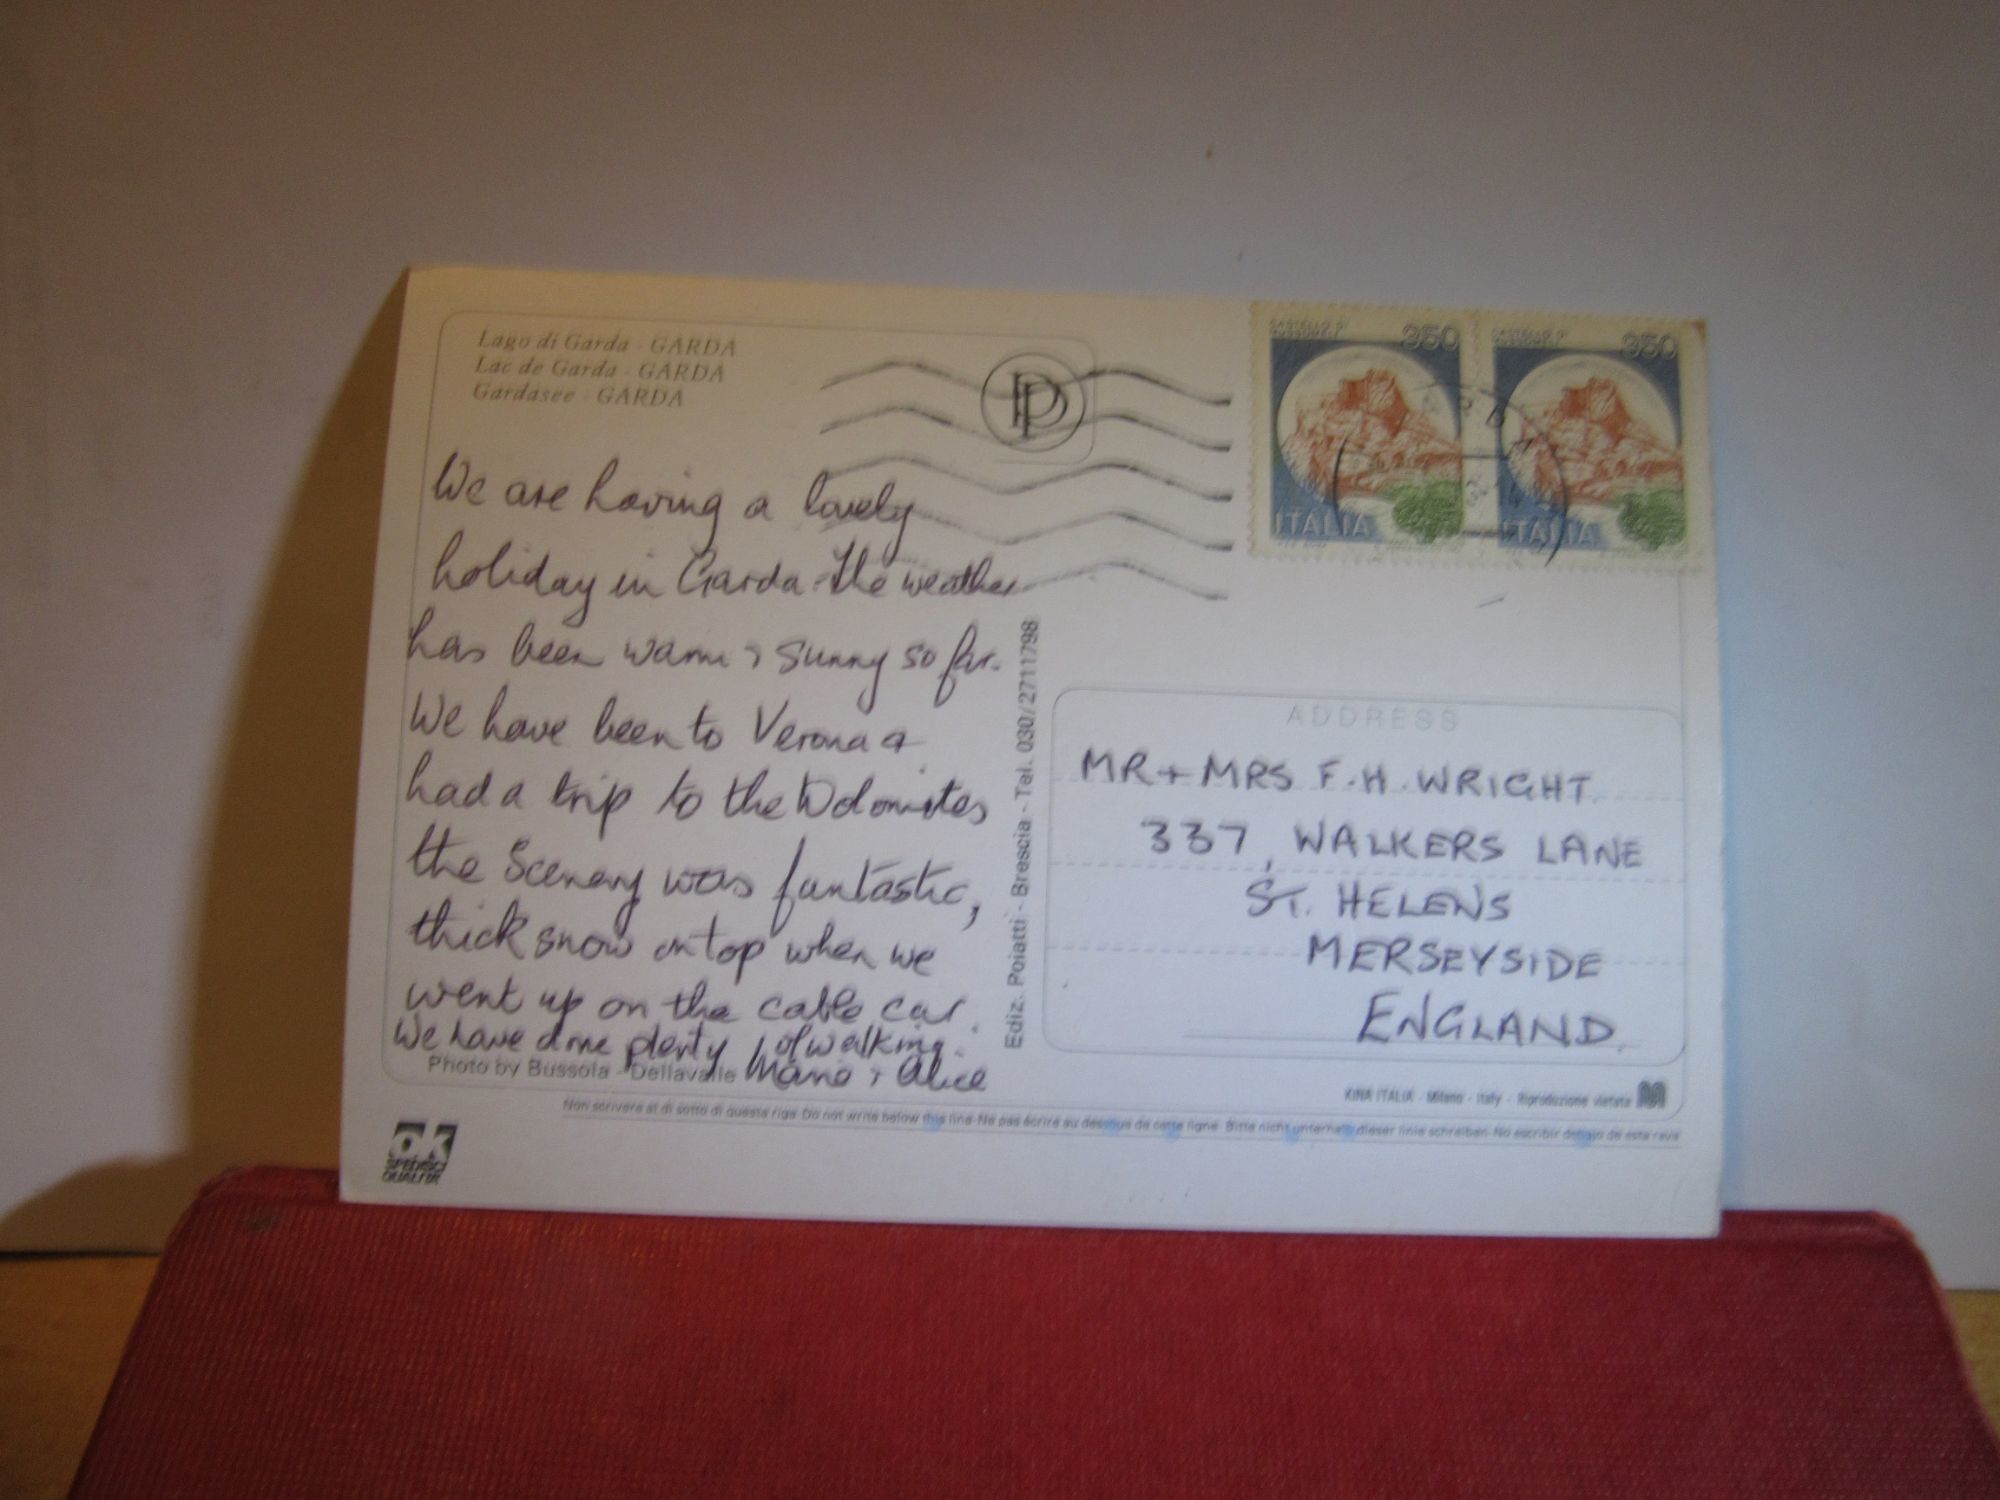 Lago di Garda - GARDA
Lac de Garda - GARDA
Gardasee - GARDA
We are having a lovely
holiday in Garda. The weather
has been warm & sunny so far.
We have been to Verona &
had a trip to the Dolomites
the Scenery was fantastic,
thick snow on top when we
went up on the cable car.
We have done plenty of walking.
Photo by Bussola - Dellavalle
& Alice
Ediz. Poiatti - Brescia - Tel. 030/2711798
PP
CASTELLO DI MUSSOMELI
350
ITALIA
CASTELLO DI MUSSOMELI
350
ITALIA
ADDRESS
MR + MRS F. H. WRIGHT
337, WALKERS LANE
ST. HELENS
MERSEYSIDE
ENGLAND.
KINA ITALIA - Milano - Italy - Riproduzione vietata
Non scrivere al di sotto di questa riga-Do not write below this line-Ne pas écrire au dessous de cette ligne-Bitte nicht unterhalb dieser linie schreiben-No escribir debajo de esta raya
OK